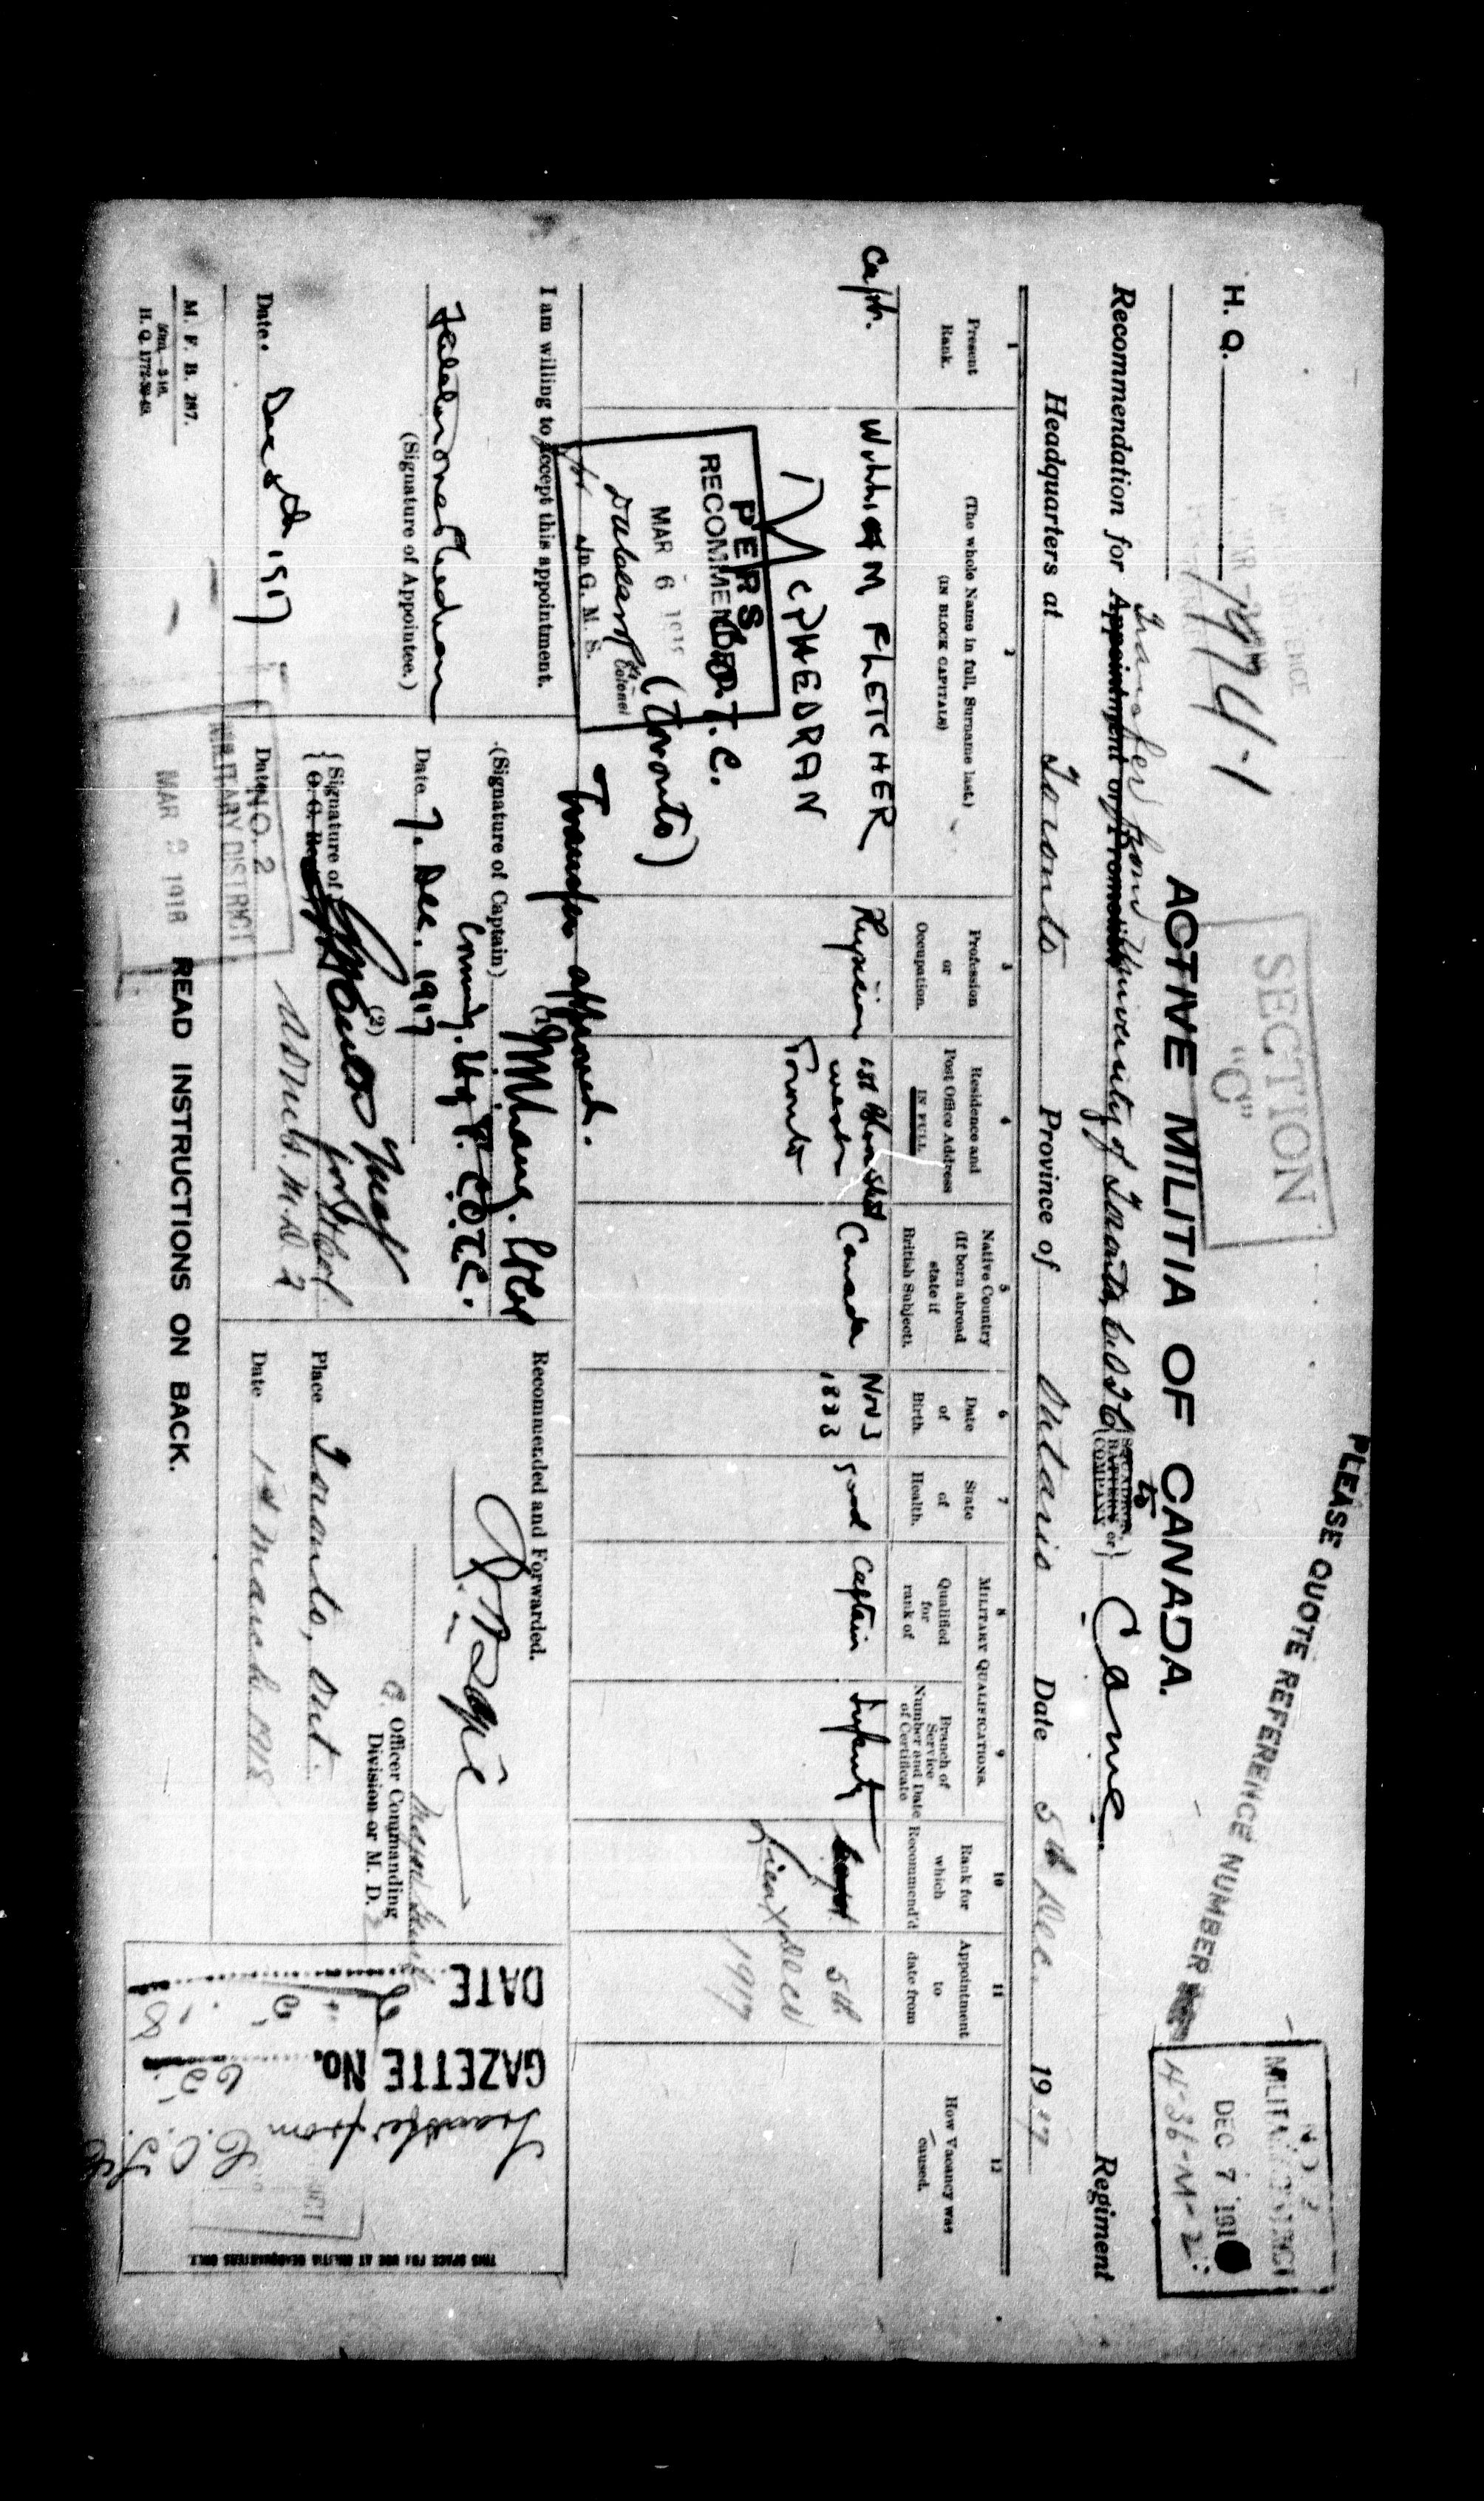 PLEASE QUOTE REFERENCE NUMBER
SECTION
"C"
DEC 7 191
4-36-M-2
H. Q. 1974-1
ACTIVE MILITIA OF CANADA.
Transfer from University of Toronto C.O.T.C. to
Recommendation for Appointment or Promotion SQUADRON, BATTERY or COMPANY } C.A.M.C. Regiment
Headquarters at Toronto Province of Ontario Date 5th Dec. 1917
1 2 3 4 5 6 7 8 9 10 11 12
Present Rank.
(The whole Name in full, Surname last.)
(IN BLOCK CAPITALS)
Profession or Occupation.
Residence and Post Office Address IN FULL
Native Country (If born abroad state if British Subject).
Date of Birth.
State of Health.
MILITARY QUALIFICATIONS.
Qualified for rank of
Branch of Service Number and Date of Certificate
Rank for which Recommend'd
Appointment to date from
How Vacancy was caused.
Capt. WILLIAM FLETCHER Physician Canada Nov 3 Good Captain Infantry Capt. 5th
McPHEDRAN west Toronto Lieut Dec 1917
C.O.T.C.
(Toronto)
PERS.
RECOMMENDED.
MAR 6
Colonel
G. M. S.
Transfer approved.
I am willing to accept this appointment.
(Signature of Appointee.)
Date. Dec 8th 1917
(1)
(Signature of Captain)
Commdg. U of T. C.O.T.C.
Date 7. Dec. 1917
(2)
Signature of
O. C.
for
A.D.M.S. M.D. 2
Date
NO. 2
MILITARY DISTRICT
MAR 2 1918
Recommended and Forwarded.
Officer Commanding
Division or M. D. 2
Place Toronto, Ont.
Date 1st March 1918
DATE
GAZETTE No.
Transfer from
C.O.T.C.
THIS SPACE FOR USE AT MILITIA HEADQUARTERS ONLY.
M. F. B. 287.
H. Q. 1772-39-43.
READ INSTRUCTIONS ON BACK.